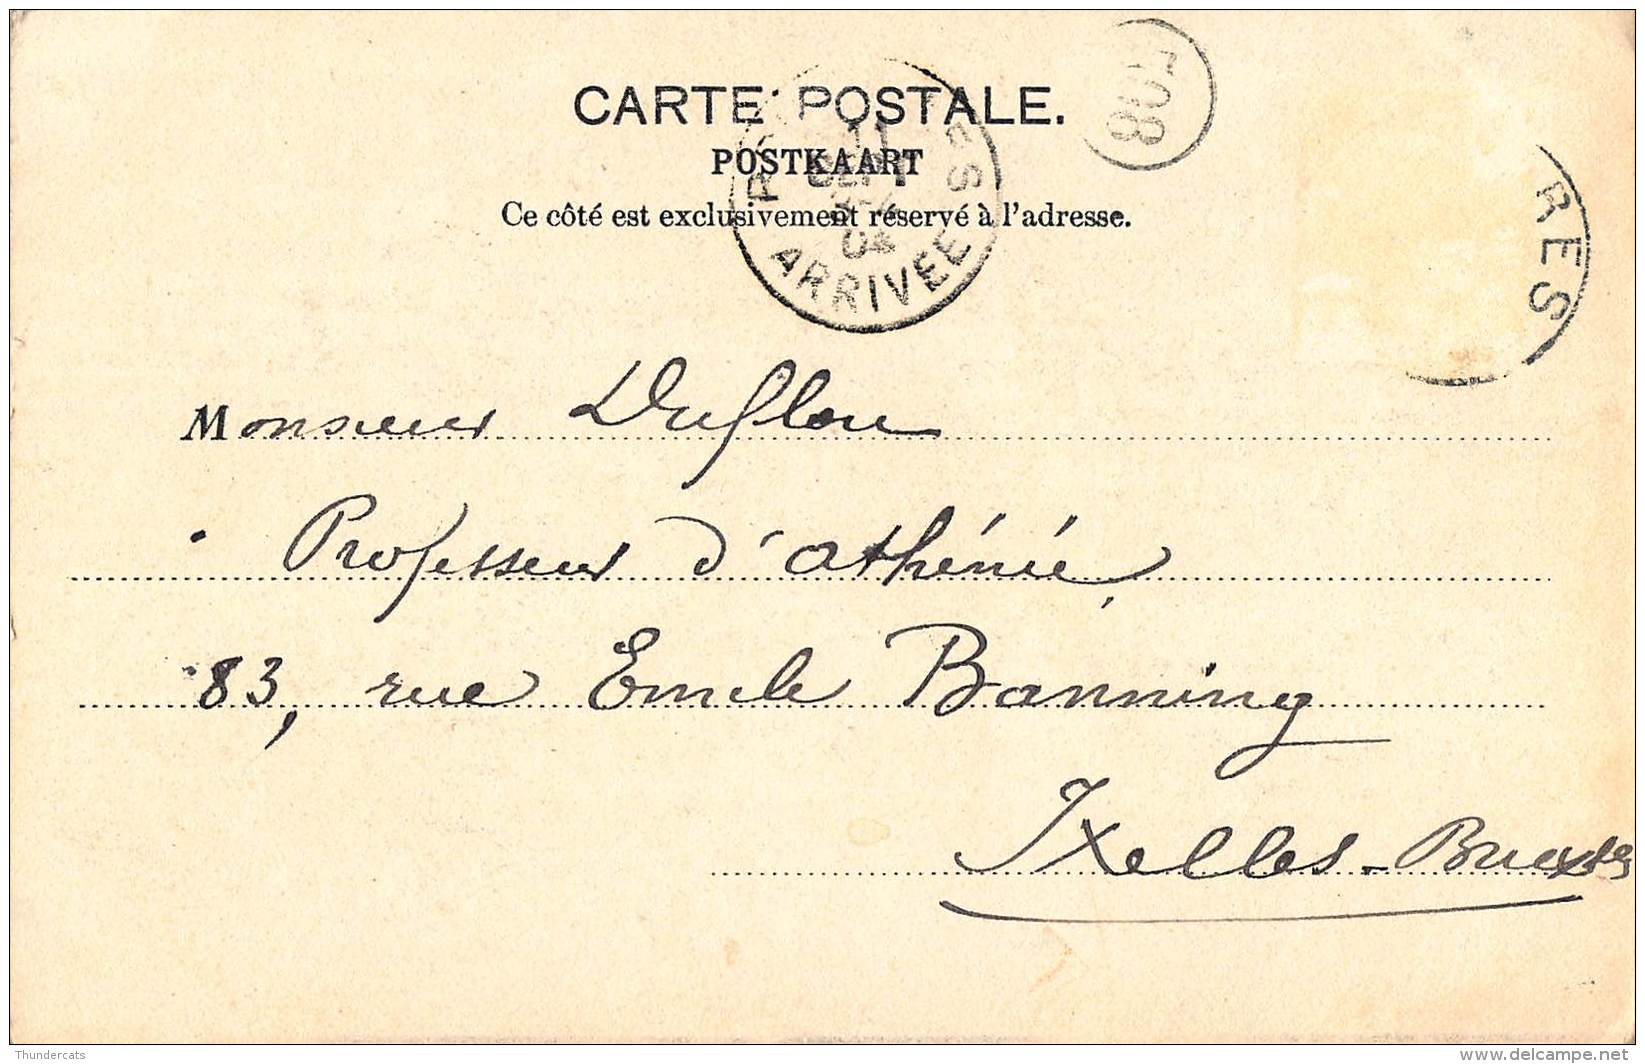 CARTE POSTALE.
POSTKAART
Ce côté est exclusivement réservé à l'adresse.
ARRIVEE
04
508
RES
Monsieur Duflou
Professeur d'athénée
83, rue Emile Banning
Ixelles-Bruxelles
Thundercats
www.delcampe.net